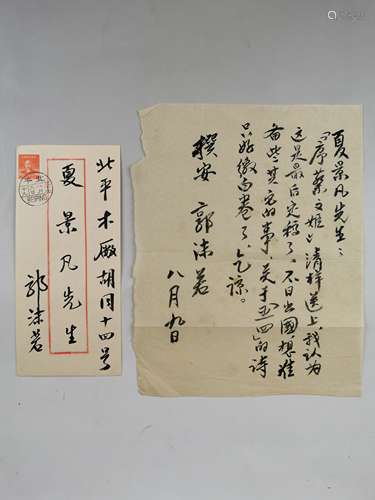 北平木廠胡同十四号
夏景凡先生
郭沫若
夏景凡先生：
『序蔡文姬』清样送上，我认为
这是最后定稿了。不日出國想准
备些其它的事，关于「五四」的诗
只好缴白卷了，乞谅。
撰安 郭沫若
八月九日